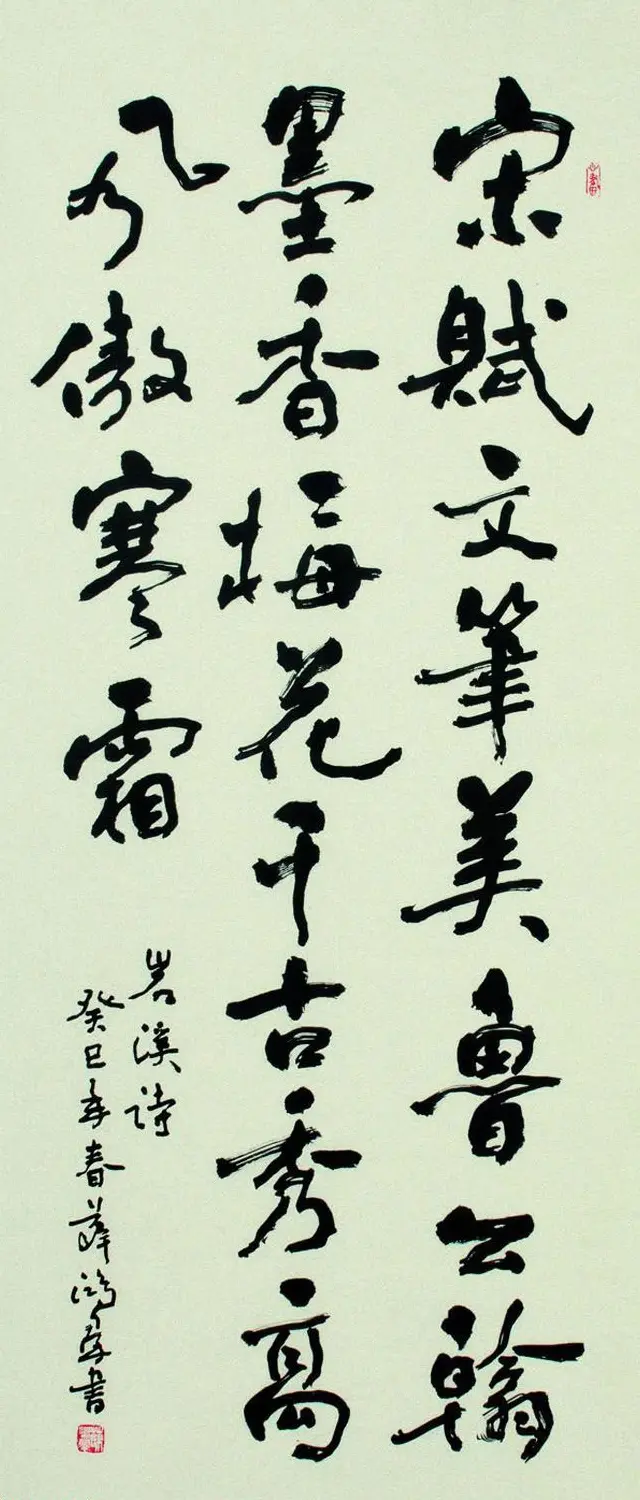 宋賦文筆美魯公翰
墨香梅花千古秀高
風傲寒霜
岩溪詩
癸巳年春薛鴻群書